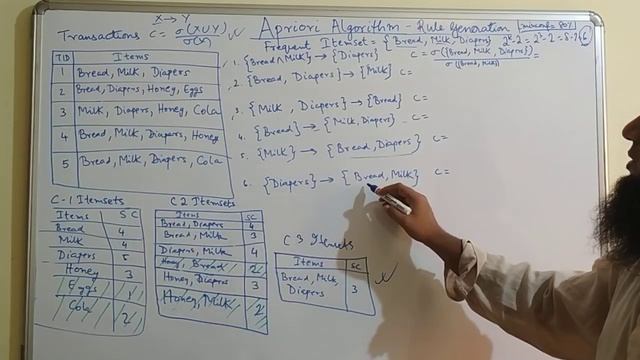 X → Y
Transactions C = σ(XUY)
σ(X)
Apriori Algorithm - Rule Generation
minconf = 80%
Frequent Itemset = { Bread, Milk, Diapers} 2^k-2 = 2^3-2 = 8-2 (6)
TID Items
1 Bread, Milk, Diapers
2 Bread, Diapers, Honey, Eggs
3 Milk, Diapers, Honey, Cola
4 Bread, Milk, Diapers, Honey
5 Bread, Milk, Diapers, Cola
1. {Bread ∧ Milk} → {Diapers} C = σ({Bread, Milk, Diapers}) =
σ({Bread, Milk})
2. {Bread, Diapers} → {Milk} C =
3. {Milk, Diapers} → {Bread} C =
4. {Bread} → {Milk, Diapers} C =
5. {Milk} → {Bread, Diapers} C =
6. {Diapers} → {Bread, Milk} C =
C-1 Itemsets
Items SC
Bread 4
Milk 4
Diapers 5
Honey 3
Eggs 1
Cola 2
C2 Itemsets
Items SC
Bread, Diapers 4
Bread, Milk 3
Diapers, Milk 4
Honey, Bread 2
Honey, Diapers 3
Honey, Milk 2
C3 Itemsets
Items SC
Bread, Milk, 3
Diapers